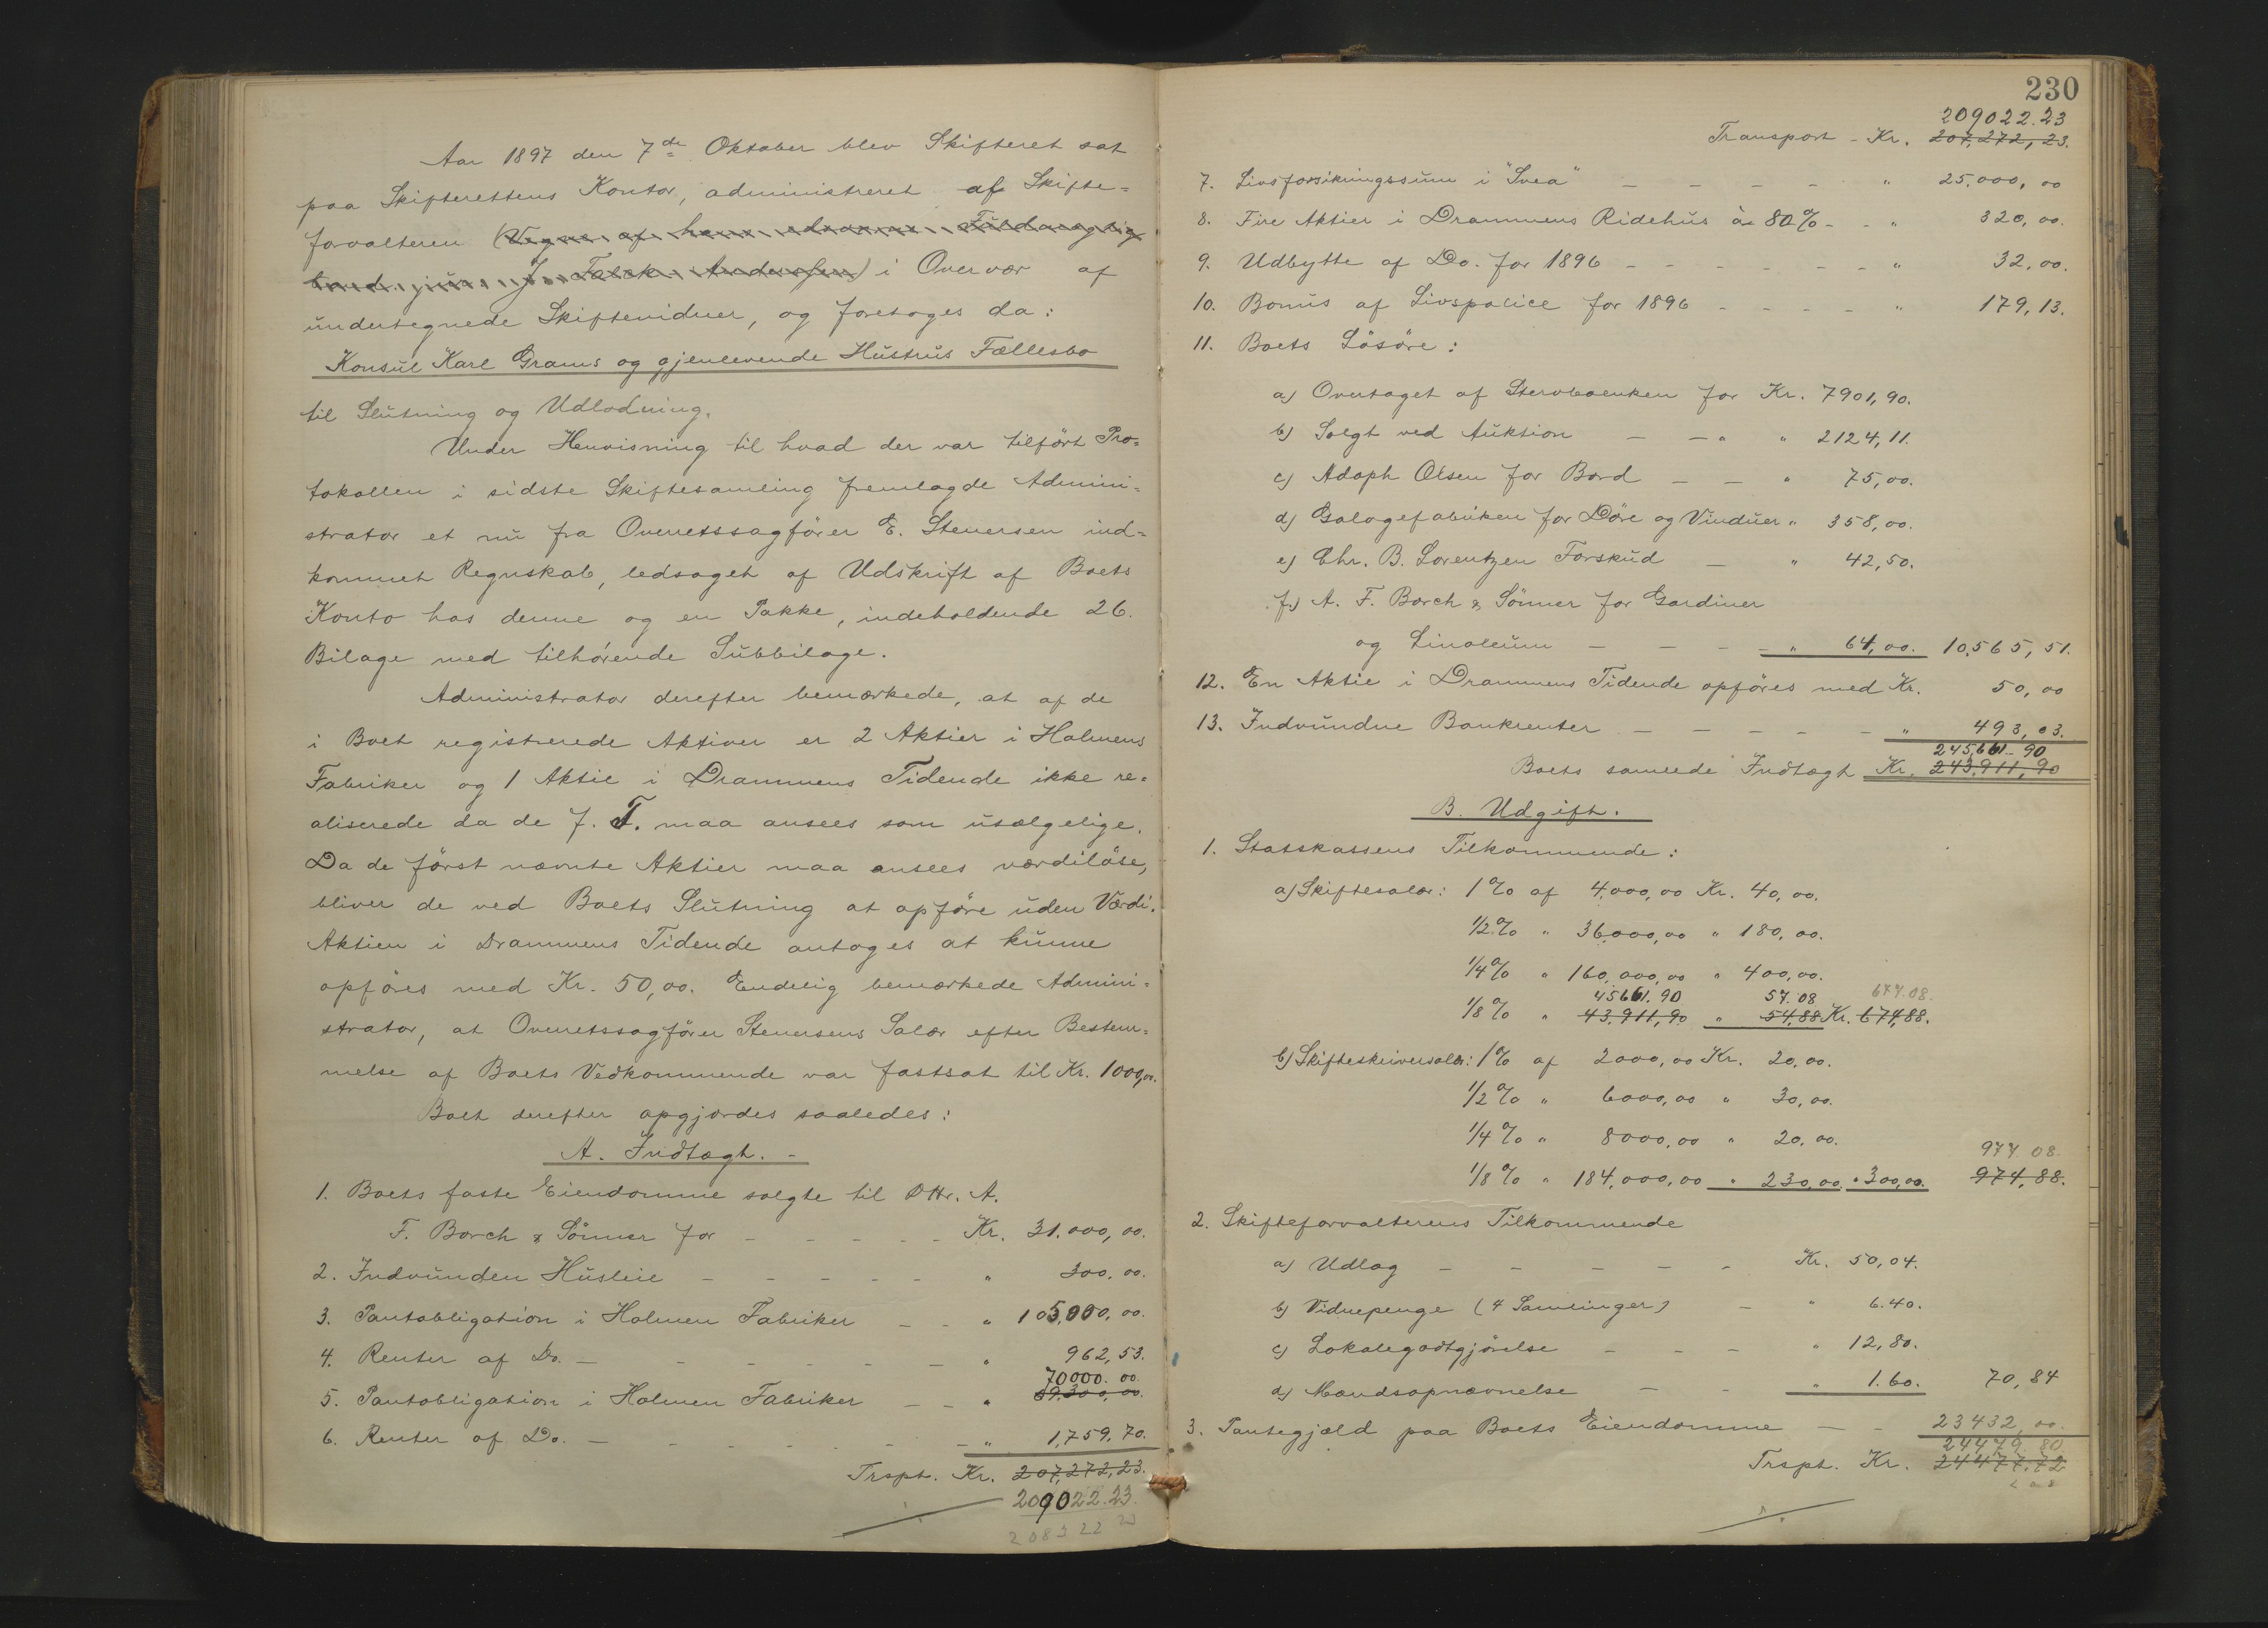 Aar 1897 den 7de Oktober blev Skifteret sat
paa Skifterettens Kontor, administreret af Skifte=
forvalteren (Vegne af hans edsvorne Fuldmægtig
cand. jur. J. Falck Anderssen) i Overvær af
undertegnede Skiftevidner, og foretoges da:
Konsul Karl Grams og gjenlevende Hustrus Fællesbo
til Slutning og Udlodning.
Under Henvisning til hvad der var tilført Pro=
tokollen i sidste Skiftesamling fremlagde Admini=
strator et nu fra Overretssagfører E. Stenersen ind=
kommet Regnskab, ledsaget af Udskrift af Boets
Konto hos denne og en Pakke, indeholdende 26.
Bilage med tilhørende Subbilage.
Administrator derefter bemærkede, at af de
i Boet registrerede Aktiver er 2 Aktier i Holmens
Fabriker og 1 Aktie i Drammens Tidende ikke re=
aliserede da de f. T. maa ansees som usælgelige.
Da de først nævnte Aktier maa ansees værdiløse,
bliver de ved Boets Slutning at opføre uden Værdi.
Aktien i Drammens Tidende antoges at kunne
opføres med Kr. 50,00. Endelig bemærkede Admini=
strator, at Overretssagfører Stenersens Salær efter Bestem=
melse af Boets Vedkommende var fastsat til Kr. 1000,00.
Boet derefter opgjordes saaledes:
A. Indtægt. -
1. Boets faste Eiendomme solgte til DHr. A.
F. Borch & Sønner for - - - - - Kr. 31.000,00.
2. Indvunden Husleie - - - - - " 300,00.
3. Pantobligation i Holmen Fabriker - - " 105,000,00.
4. Renter af Do. - - - - - - - " 962,53.
70000.00
5. Pantobligation i Holmen Fabriker - - " 69,300,00.
6. Renter af Do. - - - - - - - " 1,759,70.
Trspt. Kr. 207,272,23.
209022.23.
208322 23
230
209022.23
Transport - Kr. 207,272,23.
7. Livsforsikringssum i "Svea" - - - - " 25.000,00
8. Fire Aktier i Drammens Ridehus à 80% - - " 320,00.
9. Udbytte af Do. for 1896 - - - - - - " 32,00.
10. Bonus af Livspolice for 1896 - - - - " 179,13.
11. Boets Løsøre:
a) Overtaget af Stervboenken for Kr. 7901,90.
b) Solgt ved Auktion - - " " 2124,11.
c) Adoph Olsen for Bord - - " 75,00.
d) Galogefabriken for Døre og Vinduer " 358,00.
e) Chr. B. Lorentzen Forskud - " 42,50.
f) A. F. Borch & Sønner for Gardiner
og Linoleum - - - - " 64,00. 10,565,51.
12. En Aktie i Drammens Tidende opføres med Kr. 50,00
13. Indvundne Bankrenter - - - - - " 493,03.
245,661.90
Boets samlede Indtægt Kr. 243,911,90
B. Udgift.
1. Statskassens Tilkommende:
a) Skiftesalær: 1% af 4,000,00 Kr. 40,00.
1/2% " 36,000,00 " 180,00.
1/4% " 160,000,00 " 400,00.
45661.90 57.08 677.08.
1/8% " 43,911,90 " 54,88 Kr. 674,88.
b) Skifteskriversalær: 1% af 2000,00 Kr. 20,00.
1/2% " 6000,00 " 30,00.
1/4% " 8000,00 " 20,00.
977.08.
1/8% " 184,000,00 " 230,00. " 300,00. 974,88.
2. Skifteforvalterens Tilkommende
a) Udlæg - - - - - Kr. 50,04.
b) Vidnepenge (4 Samlinger) - " 6.40.
c) Lokalegodtgjørelse - - - " 12,80.
d) Mandsopnævnelse - - " 1.60. 70,84
3. Pantegjæld paa Boets Eiendomme - - 23432,00.
24479.80
Trspt. Kr. 24477.72